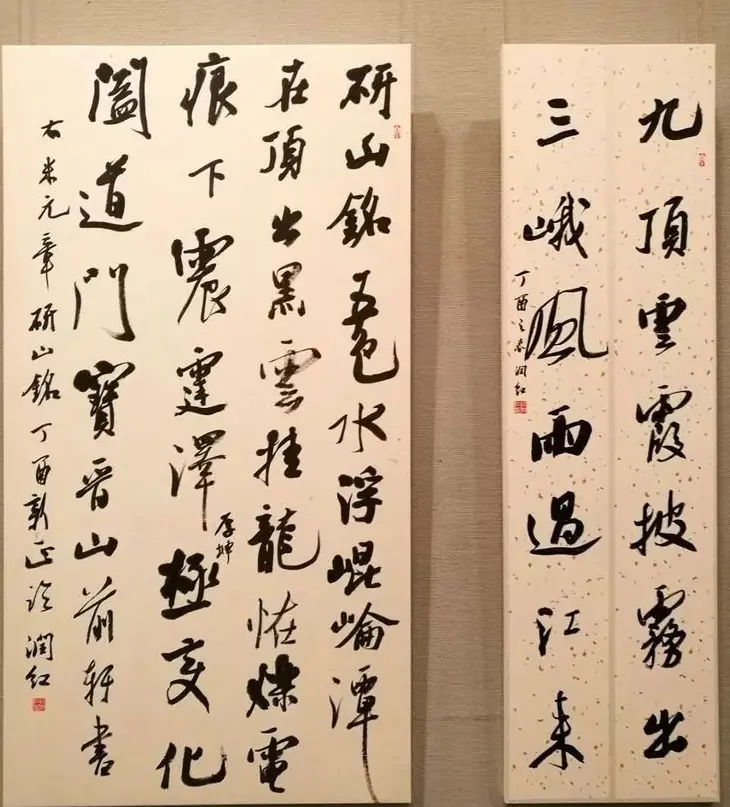 九頂雲霞披霧出
三峨風雨過江来
丁酉之春潤紅
研山銘五色水浮崐崘潭
在頂出黑雲挂龍怪爍電
痕下震霆澤厚坤極变化
闔道門寶晋山前軒書
右米元章研山銘丁酉新正潤紅